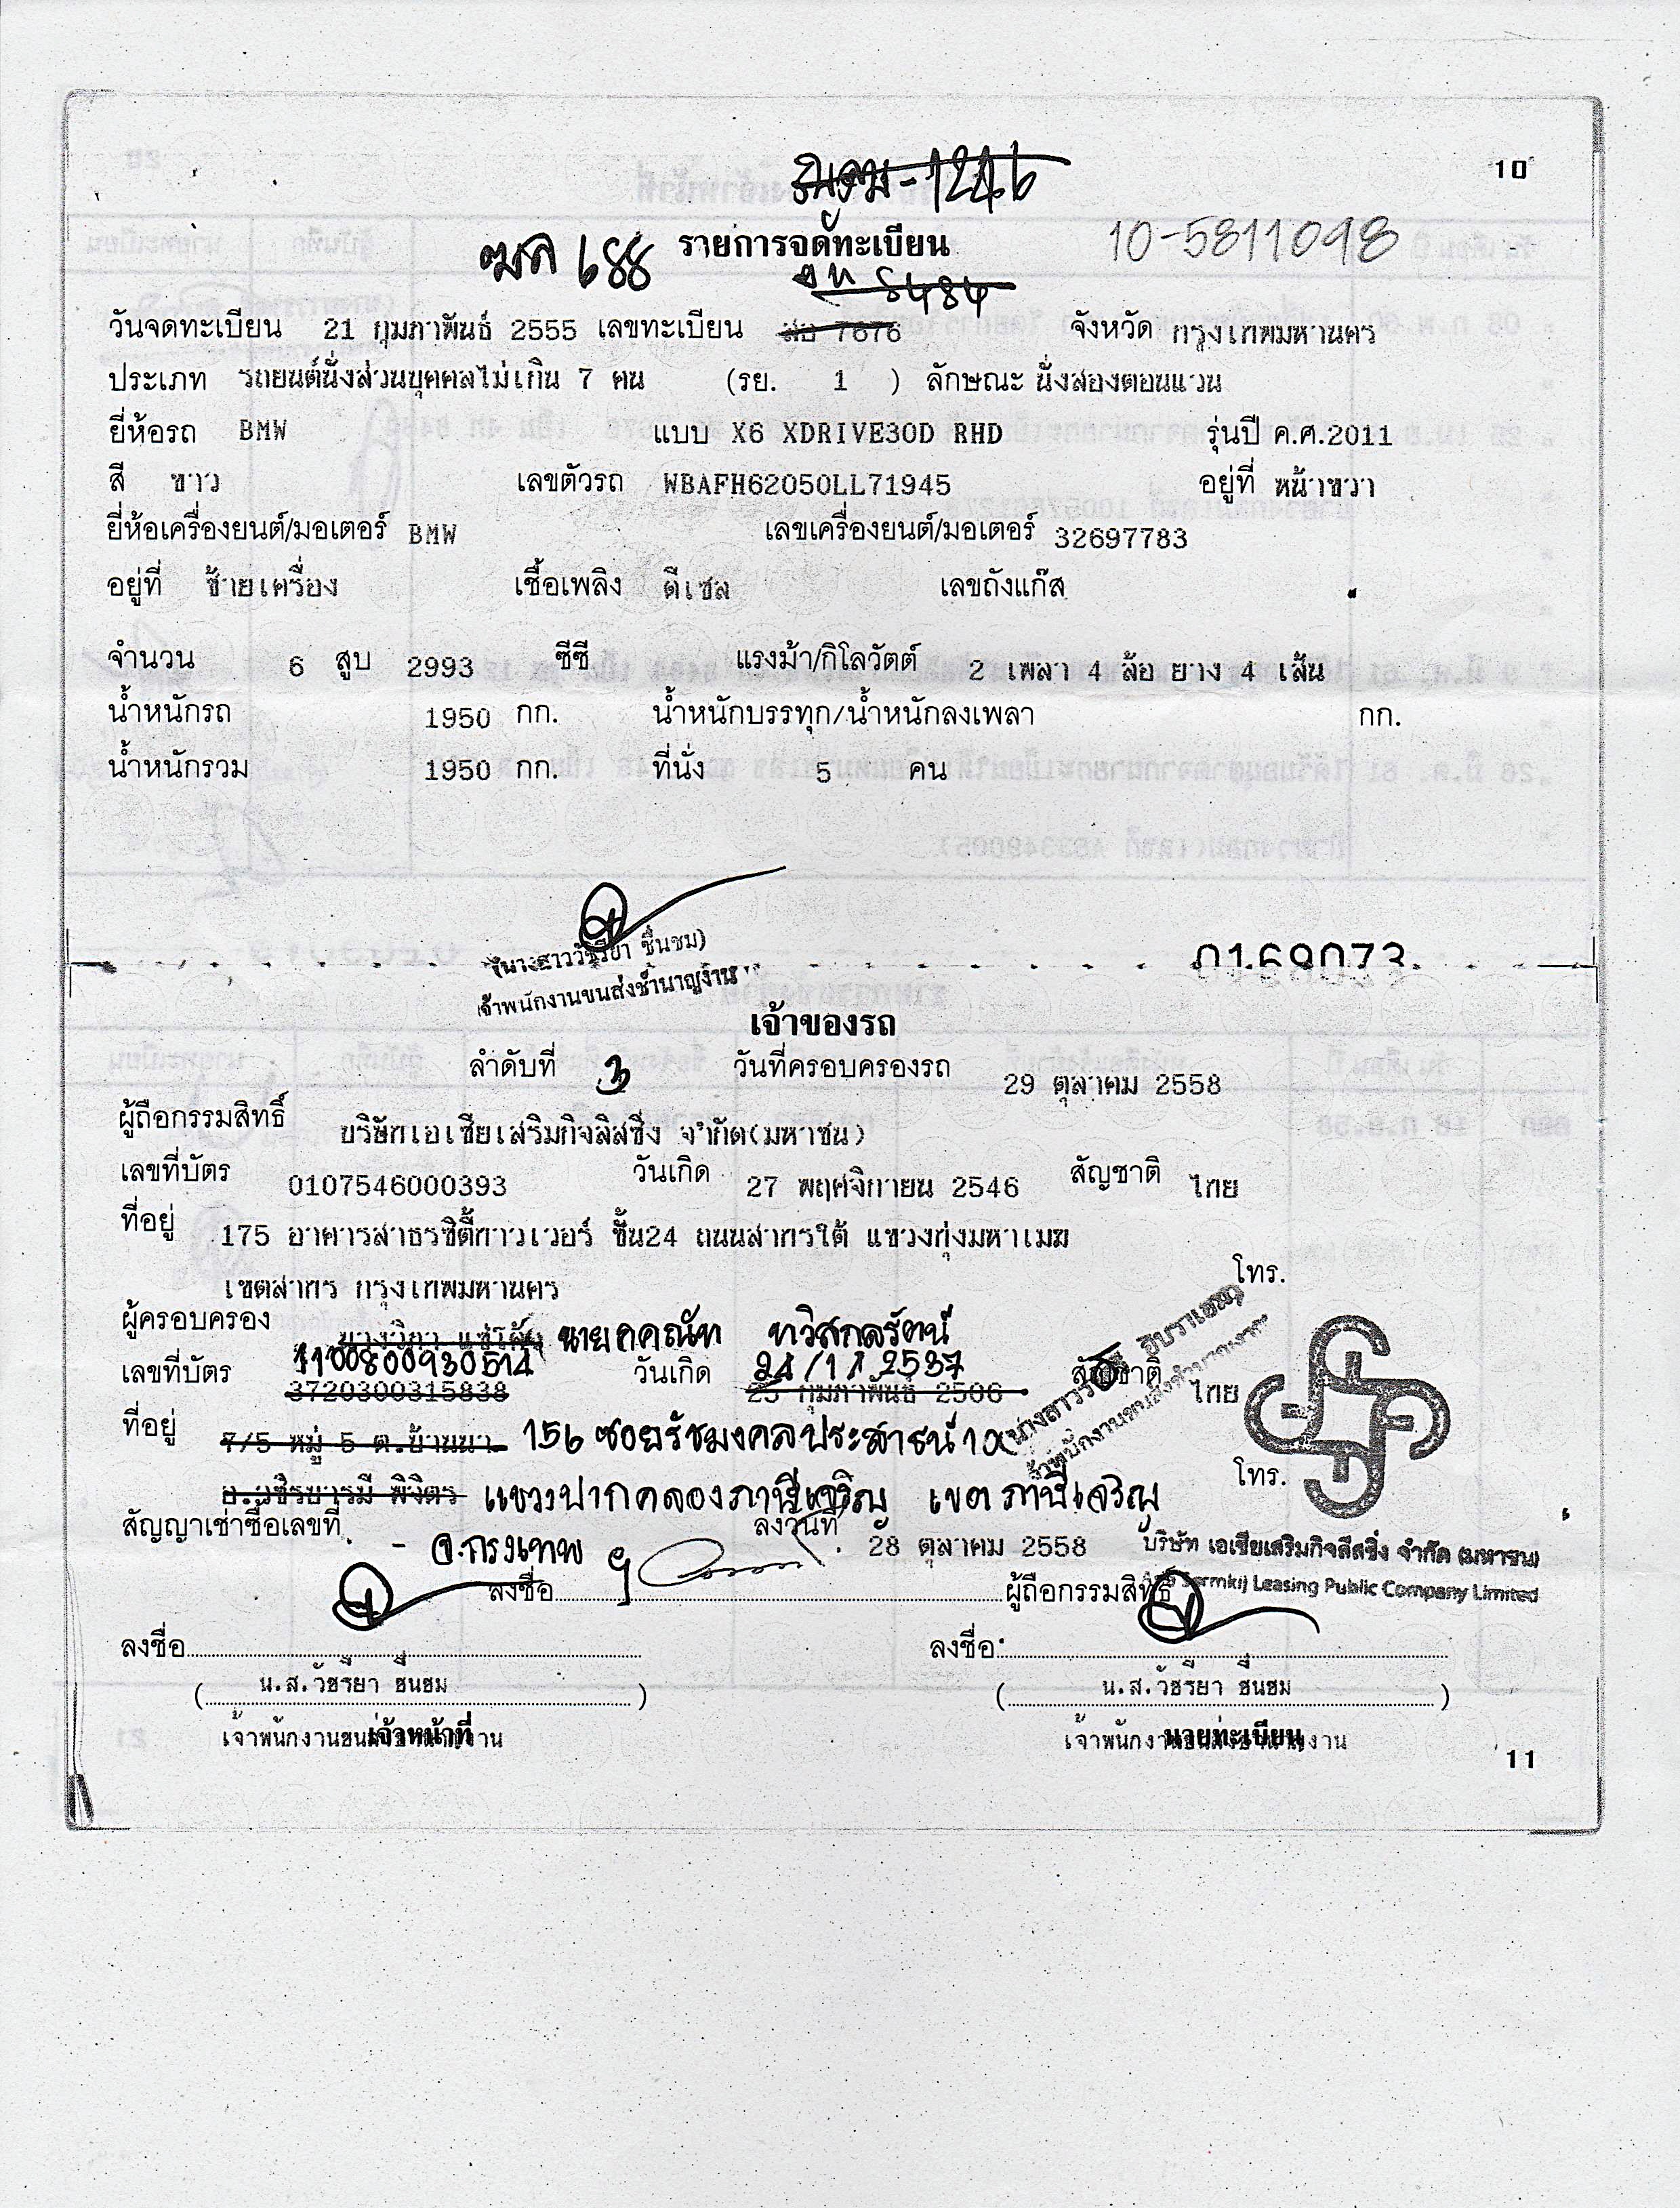 10
1246
688 รายการจดทะเบียน 10-5811098
8484
วันจดทะเบียน 21 กุมภาพันธ์ 2555 เลขทะเบียน 7676 จังหวัด กรุงเทพมหานคร
ประเภท รถยนต์นั่งส่วนบุคคลไม่เกิน 7 คน (รย. 1 ) ลักษณะ นั่งสองตอนแวน
ยี่ห้อรถ BMW แบบ X6 XDRIVE30D RHD รุ่นปี ค.ศ.2011
สี ขาว เลขตัวรถ WBAFH62050LL71945 อยู่ที่ หน้าขวา
ยี่ห้อเครื่องยนต์/มอเตอร์ BMW เลขเครื่องยนต์/มอเตอร์ 32697783
อยู่ที่ ซ้ายเครื่อง เชื้อเพลิง ดีเซล เลขถังแก๊ส
จำนวน 6 สูบ 2993 ซีซี แรงม้า/กิโลวัตต์ 2 เพลา 4 ล้อ ยาง 4 เส้น
น้ำหนักรถ 1950 กก. น้ำหนักบรรทุก/น้ำหนักลงเพลา กก.
น้ำหนักรวม 1950 กก. ที่นั่ง 5 คน
(นางสาววัชรียา ชื่นชม)
เจ้าพนักงานขนส่งชำนาญงาน
0169073
เจ้าของรถ
ลำดับที่ 3 วันที่ครอบครองรถ 29 ตุลาคม 2558
ผู้ถือกรรมสิทธิ์ บริษัทเอเซียเสริมกิจลิสซิ่ง จำกัด(มหาชน)
เลขที่บัตร 0107546000393 วันเกิด 27 พฤศจิกายน 2546 สัญชาติ ไทย
ที่อยู่ 175 อาคารสาธรซิตี้ทาวเวอร์ ชั้น24 ถนนสาทรใต้ แขวงทุ่งมหาเมฆ
เขตสาทร กรุงเทพมหานคร โทร.
ผู้ครอบครอง นาย ทวิสกุลรัตน์
1100800930514 24/11/2537
เลขที่บัตร 3720300315838 วันเกิด 25 กุมภาพันธ์ 2506 สัญชาติ ไทย
ที่อยู่ 7/5 หมู่ 5 ต.บ้านนา 156 ซอยรัชมงคลประสาธน์10
อ.วชิรบารมี พิจิตร แขวงปากคลองภาษีเจริญ เขตภาษีเจริญ โทร.
สัญญาเช่าซื้อเลขที่ - จ.กรุงเทพ ลงวันที่ 28 ตุลาคม 2558
บริษัท เอเซียเสริมกิจลีสซิ่ง จำกัด (มหาชน)
Asia Sermkij Leasing Public Company Limited
ลงชื่อ ผู้ถือกรรมสิทธิ์
ลงชื่อ ลงชื่อ
(น.ส.วัชรียา ชื่นชม) (น.ส.วัชรียา ชื่นชม)
เจ้าหน้าที่ นายทะเบียน
11